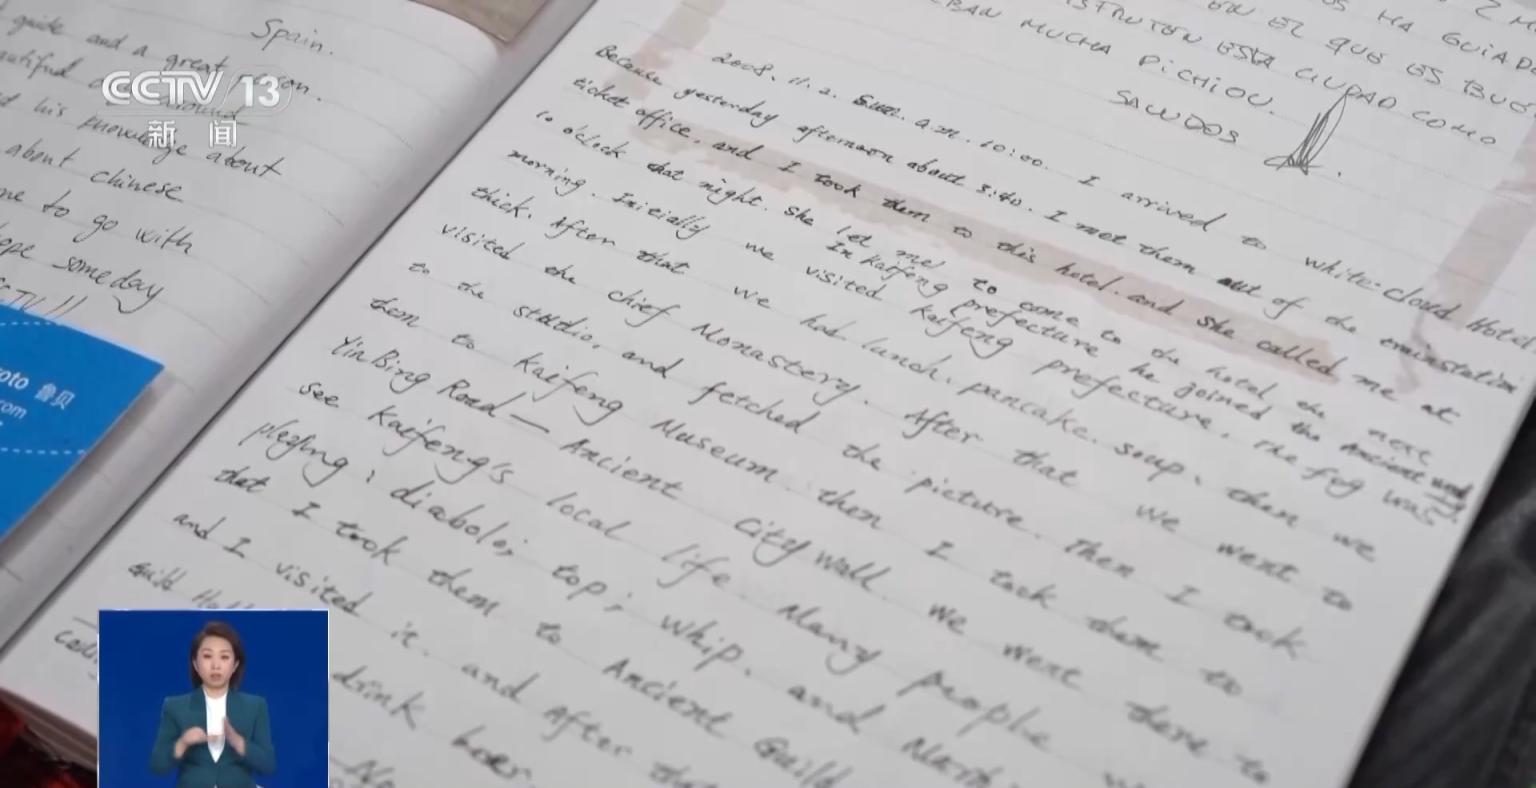 CCTV 13
新闻
Spain.
guide and a great
about
his knowledge about
about chinese
me to go with
hope someday
oto 鲁贝
com
HA GUIADO
EN EL QUE ES
ESTA CIUDAD COMO
MUCHA
PICHIOU.
SALUDOS
2008. 11. 2. Sun. a.m. 10:00. I arrived to white-cloud Hotel
Because yesterday afternoon about 3:40. I met them out of the trainstation
ticket office. and I took them to this hotel. and she called me at
10 o'clock that night. she let me to come to the hotel the next
morning. Initially we visited Kaifeng prefecture. The fog was
In Kaifeng prefecture he joined the Ancient
thick. After that we had lunch. pancake. soup. then we
visited the chief Monastery. After that we went to
to the studio. and fetched the picture. Then I took
them to Kaifeng Museum. then I took them to
YinBing Road — Ancient City wall. We went there to
see Kaifeng's local life. Many people
playing: diabolo; top; whip. and
that I took them to Ancient Guild
and I visited it. and After that
drink beer